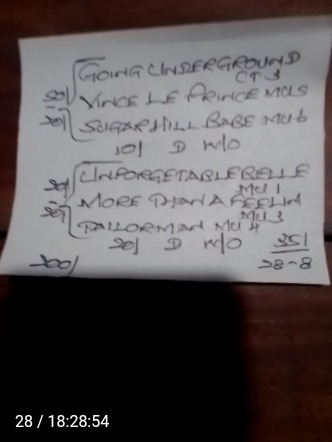 GOING UNDERGROUND
CT 3
20/ VINCE LE PRINCE MUS
20/ SUGARHILL BABE MU6
10/ D W/O
20/ UNFORGETABLE BELLE
MU 1
20/ MORE THAN A FEELIN
MU 3
TAILORMAN MU 4
20/ D W/O
200/
28-8
28 / 18:28:54